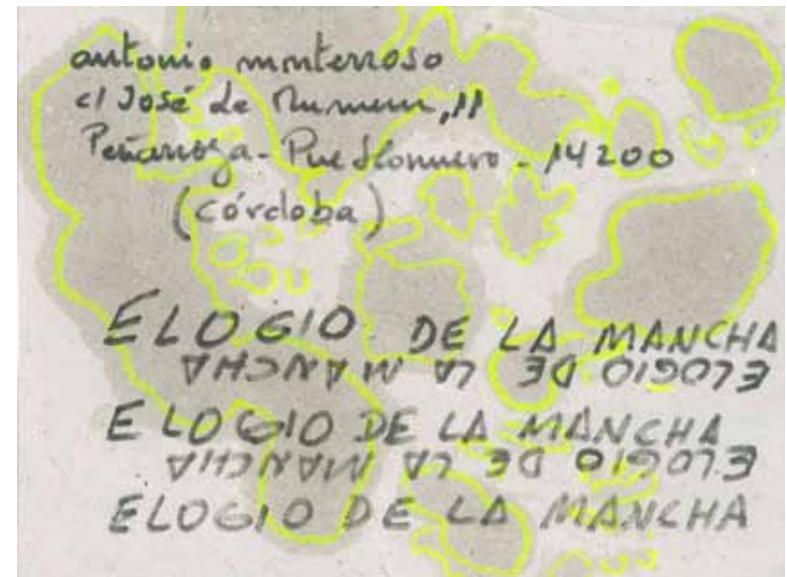 antonio monterroso
c/ José de Mumeur, 11
Peñarroya - Pueblonuevo - 14200
(córdoba)
ELOGIO DE LA MANCHA
ELOGIO DE LA MANCHA
ELOGIO DE LA MANCHA
ELOGIO DE LA MANCHA
ELOGIO DE LA MANCHA